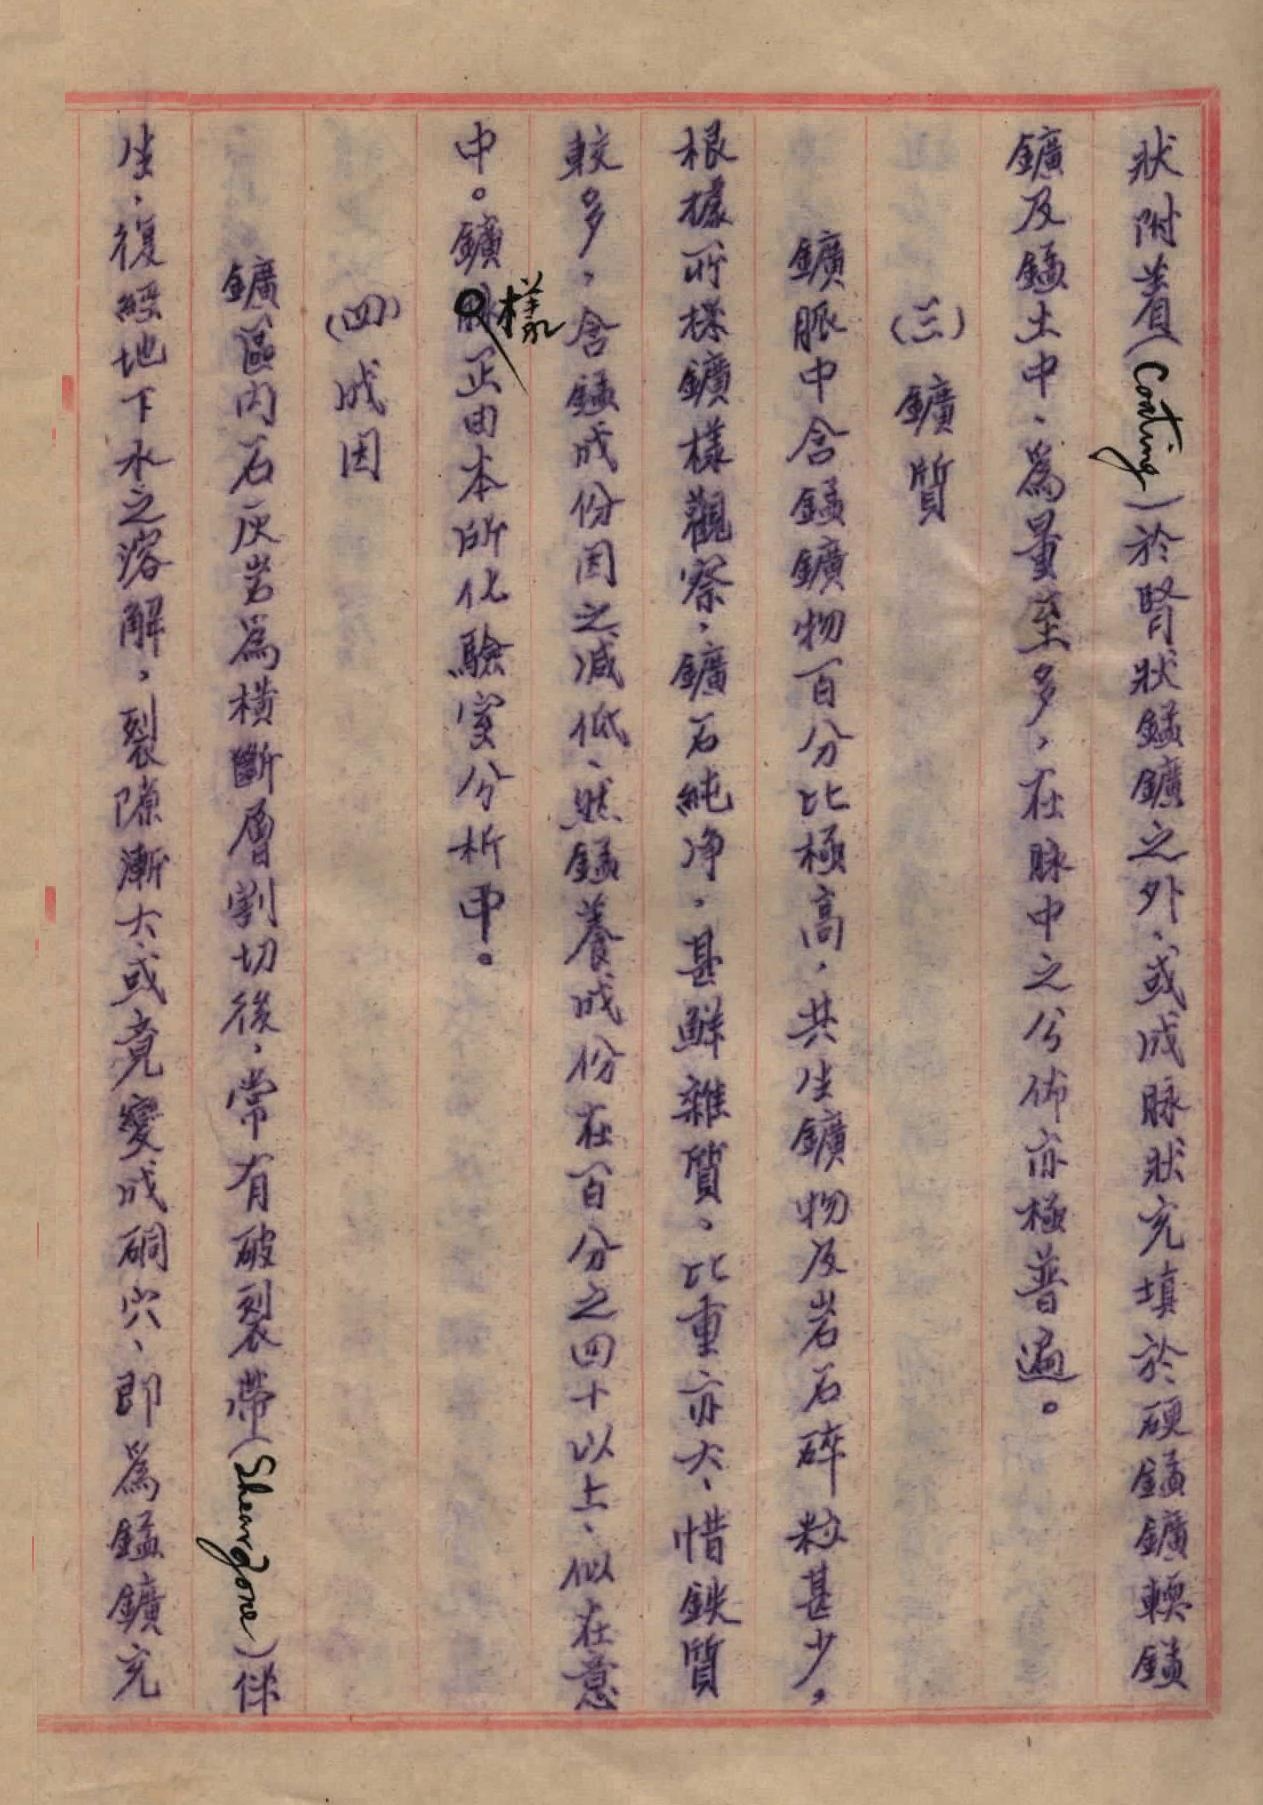 狀附着(Coating)於腎狀錳鑛之外、或成脉狀充填於硬錳鑛輭錳
鑛及錳土中、為量至多,在脉中之分佈亦極普遍。
(三)鑛質
鑛脈中含錳鑛物百分比極高,共生鑛物及岩石碎粒甚少,
根據所採鑛樣觀察,鑛石純净,甚鮮雜質,比重亦大、惜鉄質
較多,含錳成份因之减低、然錳養成份在百分之四十以上、似在意
中。鑛樣正由本所化驗室分析中。
(四)成因
鑛區内石灰岩為橫斷層割切後,常有破裂帶(Shear Zone)伴
生,復經地下水之溶解,裂隙漸大或竟變成硐穴、即為錳鑛充